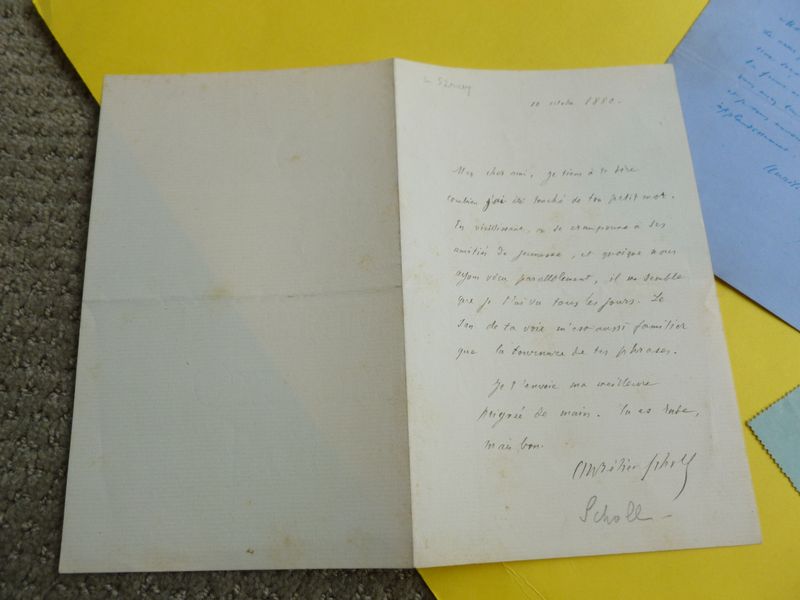 10 octobre 1880.
Mon cher ami, je tiens à te dire
combien j'ai été touché de ton petit mot.
En vieillissant, on se cramponne à ses
amitiés de jeunesse, et quoique nous
ayons vécu parallèlement, il me semble
que je t'ai vu tous les jours. Le
son de ta voix m'est aussi familier
que la tournure de tes phrases.
Je t'envoie ma meilleure
poignée de main. Tu es rude,
mais bon.
Aurélien Scholl
Scholl